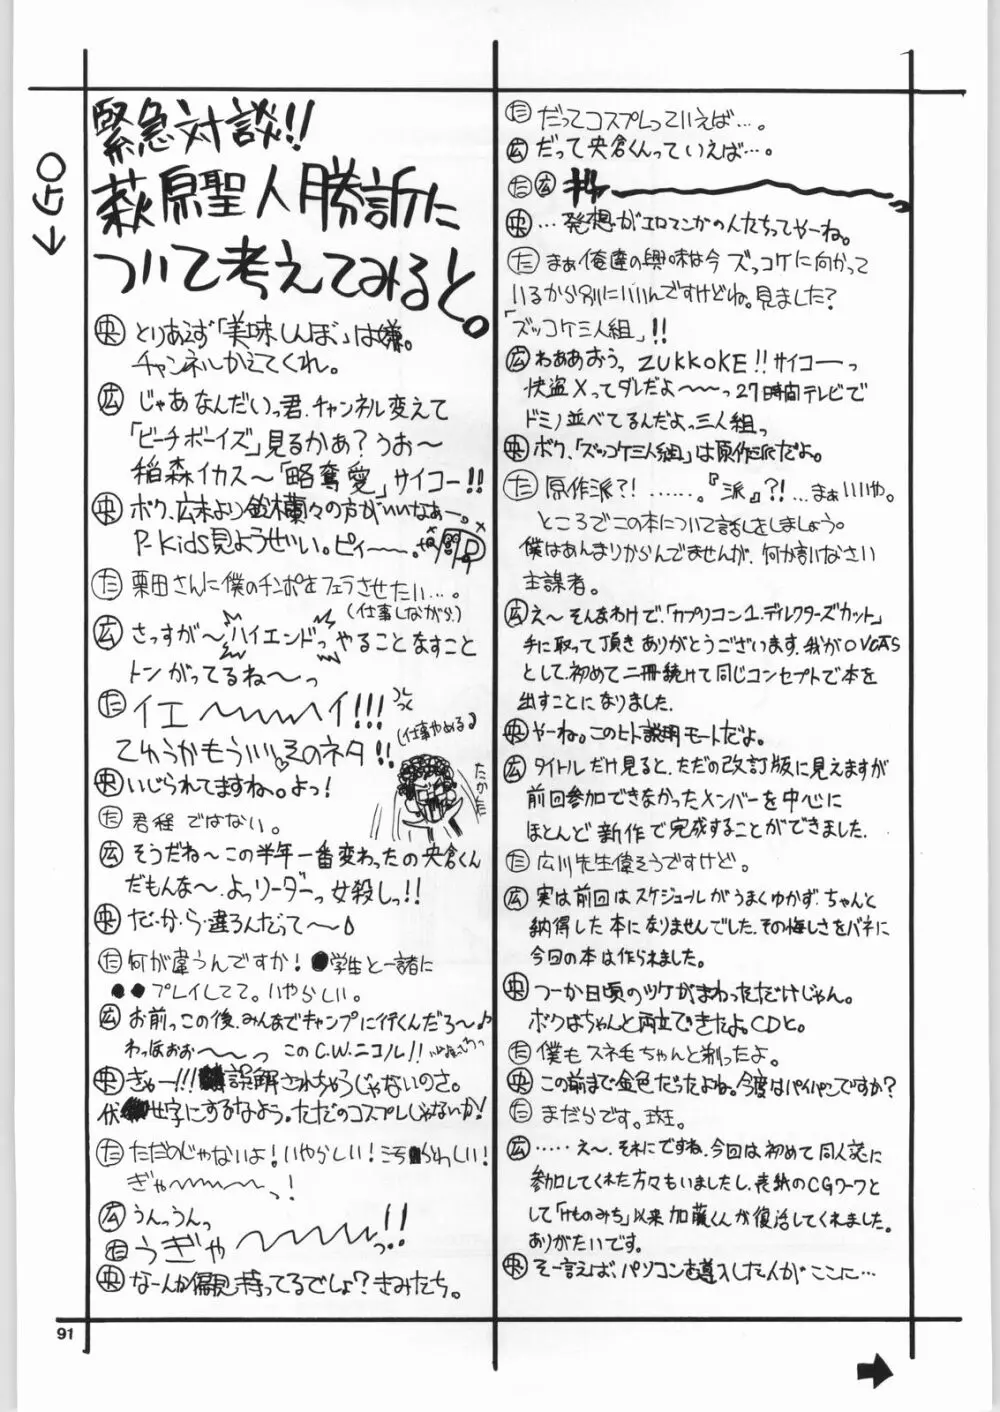 ←GO
緊急対談!!
萩原聖人勝訴に
ついて考えてみると。
央 とりあえず「美味しんぼ」は嫌。
チャンネルかえてくれ。
広 じゃあなんだいっ君、チャンネル変えて
「ビーチボーイズ」見るかぁ?うお〜
稲森イカス〜「略奪愛」サイコー!!
央 ボク、広末より鈴木蘭々の方がいいなぁー。
P-Kids見ようぜい。ピィ〜〜。
た 栗田さんに僕のチンポをフェラさせたい…。
(仕事しながら)
広 さっすが〜ハイエンドっ やることなすこと
トンがってるね〜っ
た イエ〜〜〜〜イ!!!
てゆうかもういいよそのネタ!!
(仕事やめる♪
央 いじられてますね。よっ!
た 君程ではない。
広 そうだね〜この半年一番変わったの央倉くん
だもんな〜。よっリーダーっ女殺しっ!!
央 だ・か・ら・違うんだって〜♪
た 何が違うんですか!●学生と一諸に
●●プレイしてて。いやらしい。
広 お前っこの後、みんなでキャンプに行くんだろ〜♪
わっほおぉ〜〜っ このC.W.ニコル!!
央 ぎゃー!!!誤解されちゃうじゃないのさ。
伏せ字にするなよう。ただのコスプレじゃないか!
た ただのじゃないよ!いやらしい!汚らわしい!
ぎゃ〜〜〜〜っ!
広 うんっうんっ
た うぎゃ〜〜〜〜っ!!
央 なーんか偏見持ってるでしょ?きみたち。
た だってコスプレっていえば…。
広 だって央倉くんっていえば…。
た 広 キャ〜〜〜〜
央 …発想がエロマンガの人たちってやーね。
た まぁ俺達の興味は今ズッコケに向かって
いるから別にいいんですけどね。見ました?
「ズッコケ三人組」!!
広 わぁあおぅっ ZUKKOKE!!サイコーっ
快盗Xってダレだよ〜〜っ27時間テレビで
ドミノ並べてるんだよっ三人組っ
央 ボク、「ズッコケ三人組」は原作派だよ。
た 原作派?!……。『派』?!…まぁいいや。
ところでこの本について話しをしましょう。
僕はあんまりからんでませんが、何か言いなさい
主謀者。
広 え〜そんなわけで、「カプリコン1.ディレクターズカット」
手に取って頂きありがとうございます。我がOVCAS
として、初めて二冊続けて同じコンセプトで本を
出すことになりました。
央 やーね。このヒト説明モードだよ。
広 タイトルだけ見ると、ただの改訂版に見えますが
前回参加できなかったメンバーを中心に
ほとんど新作で完成することができました。
た 広川先生偉そうですけど。
広 実は前回はスケジュールがうまくゆかず、ちゃんと
納得した本になりませんでした。その悔しさをバネに
今回の本は作られました。
央 つーか日頃のツケがまわっただけじゃん。
ボクはちゃんと両立できたよ。CDと。
た 僕もスネ毛ちゃんと剃ったよ。
央 この前まで金色だったよね。今度はパイパンですか?
た まだらです。斑。
広 ……え〜、それにですね、今回は初めて同人誌に
参加してくれた方々もいましたし、表紙のCGワークと
して「けものみち」以来加藤くんが復活してくれました。
ありがたいです。
央 そー言えば、パソコンを導入した人がここに…
91